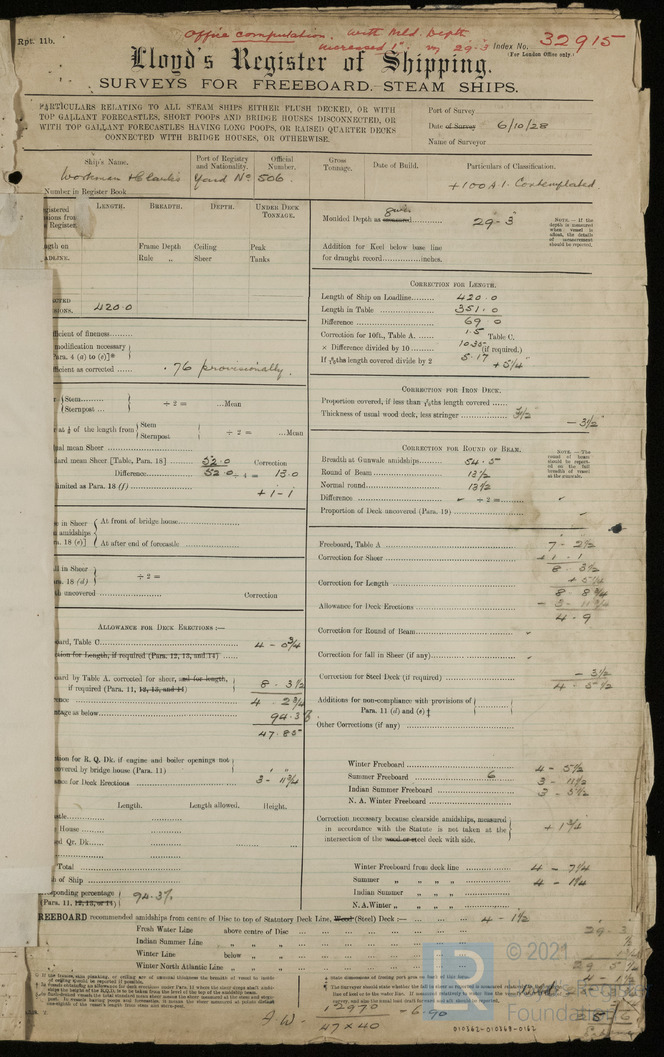 Rpt. 11b.
Office computation. With Mld. Depth
increased 1": viz 29.3
Index No. 32915
(For London Office only)
Lloyd's Register of Shipping.
SURVEYS FOR FREEBOARD. STEAM SHIPS.
PARTICULARS RELATING TO ALL STEAM SHIPS EITHER FLUSH DECKED, OR WITH
TOP GALLANT FORECASTLES, SHORT POOPS AND BRIDGE HOUSES DISCONNECTED, OR
WITH TOP GALLANT FORECASTLES HAVING LONG POOPS, OR RAISED QUARTER DECKS
CONNECTED WITH BRIDGE HOUSES, OR OTHERWISE.
Port of Survey
Date of Survey 6/10/28
Name of Surveyor
Ship's Name. Port of Registry and Nationality. Official Number. Gross Tonnage. Date of Build. Particulars of Classification.
Workman & Clark's Yard No 506. +100A.1. Contemplated.
Number in Register Book
LENGTH. BREADTH. DEPTH. UNDER DECK TONNAGE.
Frame Depth Ceiling Peak
Rule " Sheer Tanks
420.0
efficient of fineness
modification necessary
Para. 4 (a) to (e)]*
efficient as corrected .76 provisionally.
Stem
Sternpost ÷ 2 = ...Mean
at ⅛ of the length from Stem
Sternpost ÷ 2 = ...Mean
mean Sheer
mean Sheer [Table, Para. 18] 52.0 Correction
Difference 52.0 ÷ 4 = 13.0
limited as Para. 18 (f) +1-1
in Sheer At front of bridge house
amidships
18 (e)] At after end of forecastle
in Sheer
18 (d) ÷ 2 =
uncovered Correction
ALLOWANCE FOR DECK ERECTIONS:—
Table C. 4 - 0¾
for Length, if required (Para. 12, 13, and 14)
by Table A. corrected for sheer, and for length,
if required (Para. 11, 12, 13, and 14) 8 . 3½
4 . 2¾
as below 94.3%
47.85
for R. Q. Dk. if engine and boiler openings not
covered by bridge house (Para. 11)
for Deck Erections 3 - 11¾
Length. Length allowed. Height.
House
Qr. Dk.
Total
of Ship
percentage 94.3%
(Para. 11, 12, 13, or 14)
Moulded Depth as given 29-3
NOTE.—If the depth is measured when vessel is afloat, the details of measurement should be reported.
Addition for Keel below base line
for draught record inches.
CORRECTION FOR LENGTH.
Length of Ship on Loadline 420.0
Length in Table 351.0
Difference 69.0
Correction for 10ft., Table A. 1.5 Table C.
× Difference divided by 10 10.35 (if required.)
If 6/10ths length covered divide by 2 5.17 +5¼"
CORRECTION FOR IRON DECK.
Proportion covered, if less than 7/10ths length covered
Thickness of usual wood deck, less stringer 3½" —3½"
CORRECTION FOR ROUND OF BEAM.
Breadth at Gunwale amidships 54.5
Round of Beam 13½
Normal round 13½
Difference ÷ 2 =
Proportion of Deck uncovered (Para. 19)
NOTE.—The round of beam should be reported on the full breadth of vessel at the gunwale.
Freeboard, Table A 7 - 2½
Correction for Sheer +1 . 1
8 . 3½
Correction for Length + 5¼
8 . 8¾
Allowance for Deck Erections - 3 - 11¾
4 . 9
Correction for Round of Beam
Correction for fall in Sheer (if any)
Correction for Steel Deck (if required) - 3½
4 . 5½
Additions for non-compliance with provisions of
Para. 11 (d) and (e) †
Other Corrections (if any)
Winter Freeboard 4 - 5½
Summer Freeboard 6 3 - 11½
Indian Summer Freeboard 3 - 5½
N. A. Winter Freeboard
Correction necessary because clearside amidships, measured
in accordance with the Statute is not taken at the
intersection of the wood or steel deck with side. + 1¾
Winter Freeboard from deck line 4 - 7¼
Summer " " " 4 - 1¼
Indian Summer " " "
N.A. Winter " " "
FREEBOARD recommended amidships from centre of Disc to top of Statutory Deck Line, Wood (Steel) Deck:— 4 - 1½
Fresh Water Line above centre of Disc
Indian Summer Line " " "
Winter Line below " "
Winter North Atlantic Line " " "
29.3
12970
47×40
= 6.90
010562-010269-0162
LR
© 2021
Lloyd's Register
Foundation